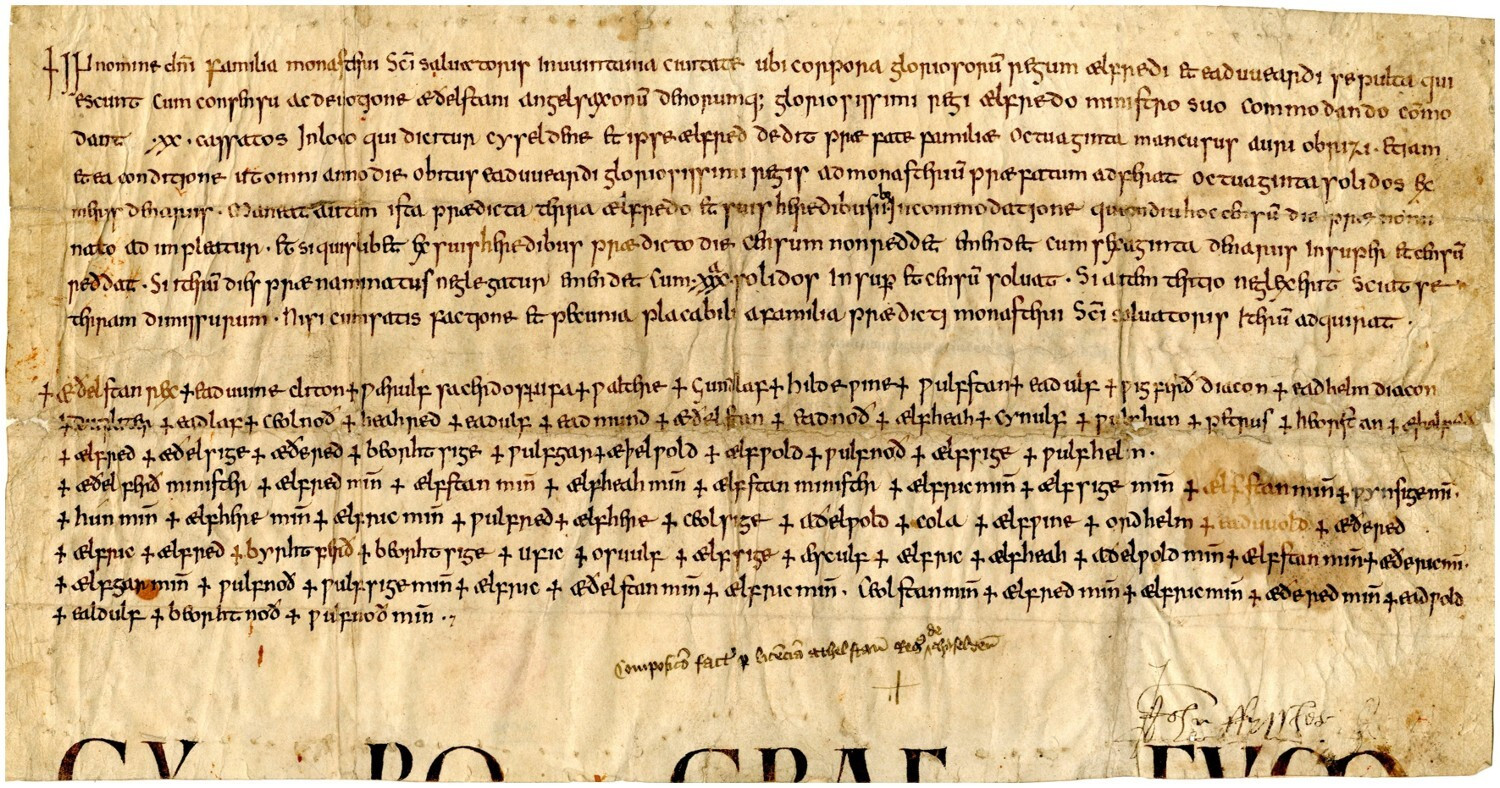 ✝ IN nomine dñi familia monasterii Sc̄i saluatoris In uuintania ciuitate ubi corpora gloriosorū regum ælfredi et eaduueardi sepulta qui
escunt cum consensu ac deuotione æðelstani angelsaxonū denorumq; gloriosissimi regi ælfredo ministro suo commodando cōmo
dant .xx. cassatos In loco qui dicitur cyseldene et ipse ælfred dedit præfate familiæ octuaginta mancusus auri obrizi. etiam
et ea conditione ut omni anno die obitus eaduueardi gloriosissimi regis ad monasteriū præfatum adferat octuaginta solidos ex
meris denarius. Maneat autem ista prædicta terra ælfredo et suis heredibus In commodatione quamdiu hoc censū die præ nomi
nato ad impleatur. et si quislibet ex suis heredibus prædicto die censum non reddet emendet cum sexaginta denarius In super et censū
reddat. Si iterū dies præ nammatus neglegatur emendet cum .xxx. solidos In sup et censū soluat. Si autem tertio neglexerit sciat se
terram dimissurum. Nisi cum satis factione et pecunia placabili a familia prædicti monasterii Sc̄i saluatoris Iterū adquirat.
+ æðelstan rex + eaduuine cliton + ƿerulf + ƿalthere + Gundlaf + hildeƿine + ƿulfstan + eadulf + ƿigferð diacon + eadhelm diacon
+ eadlaf + ceolnoð + heahred + eadulf + eadmund + æðelstan + eadnoð + ælfheah + cynulf + ƿulfhun + petrus + beorhstan
+ ælfred + æðelsige + æðered + beorhtsige + ƿulfgar + æþelƿold + ælfƿold + ƿulfnoð + ælfsige + ƿulfhelm.
+ æðelferð ministeri + ælfred min̄ + ælfstan min̄ + ælfheah min̄ + ælfstan ministeri + ælfric min̄ + ælfsige min̄ + ælfstan min̄ + ƿynsige mi̅.
+ hun min̄ + ælfhere min̄ + ælfric min̄ + ƿulfred + ælfhere + ceolsige + aðelƿold + cola + ælfƿine + ordhelm + eaduuold + æðered
+ ælfric + ælfred + byrhtferð + beorhtsige + ufic + osuulf + ælfsige + æsculf + ælfric + ælfheah + æðelƿold min̄ + ælfstan min̄ + æðeric mi̅.
+ ælfgar min̄ + ƿulfnoð + ƿulfsige min̄ + ælfric + æðelstan min̄ + ælfric min̄. Ceolstan min̄ + ælfred min̄ + ælfric min̄ + æðered min̄ + eadƿold
+ ealdulf + beorhtnoð + ƿulfnoð min̄.
Composicō fact p licēciā athelstani Reg de chyseldeñ
John
CYROGRAFUCO